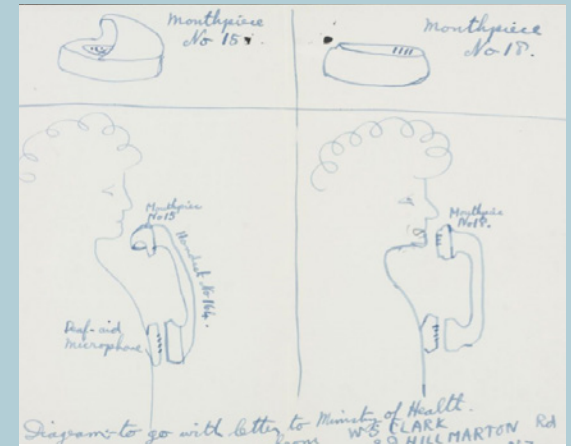 Mouthpiece
No 15.
Mouthpiece
No 18.
Mouthpiece
No 15
Handset No 164.
Deaf-aid
microphone
Mouthpiece
No 18.
Diagrams to go with letter to Ministry of Health.
from W S CLARK
HILLMARTON Rd